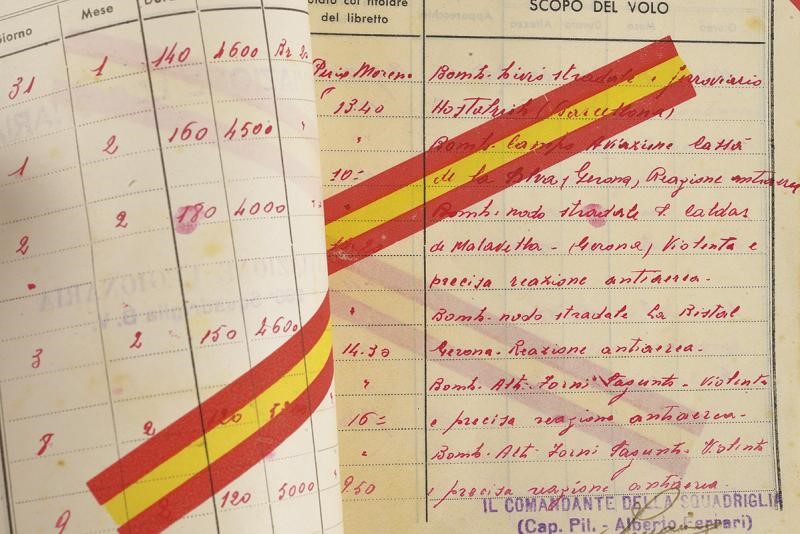 Giorno Mese
31 1 140 4600
1 2 160 4500
2 2 180 4000
3 2 150 4600
8 2 120
9 2 120 5000
col titolare
del libretto
SCOPO DEL VOLO
Moreno Bomb. bivio stradale e ferroviario
13.40 Hostalrich (Barcellona)
Bomb. campo Aviazione Cassà
10= de la Selva, (Gerona, Reazione antiaerea
Bomb. nodo stradale S. Caldas
de Malavella - (Gerona) Violenta e
precisa reazione antiaerea.
Bomb. nodo stradale La Bisbal
14.30 Gerona. Reazione antiaerea.
Bomb. Alti Forni Sagunto - Violenta
16= e precisa reazione antiaerea.
Bomb. Alti Forni Sagunto. Violenta
9.50 e precisa reazione antiaerea
IL COMANDANTE DELLA SQUADRIGLIA
(Cap. Pil. - Alberto Ferrari)